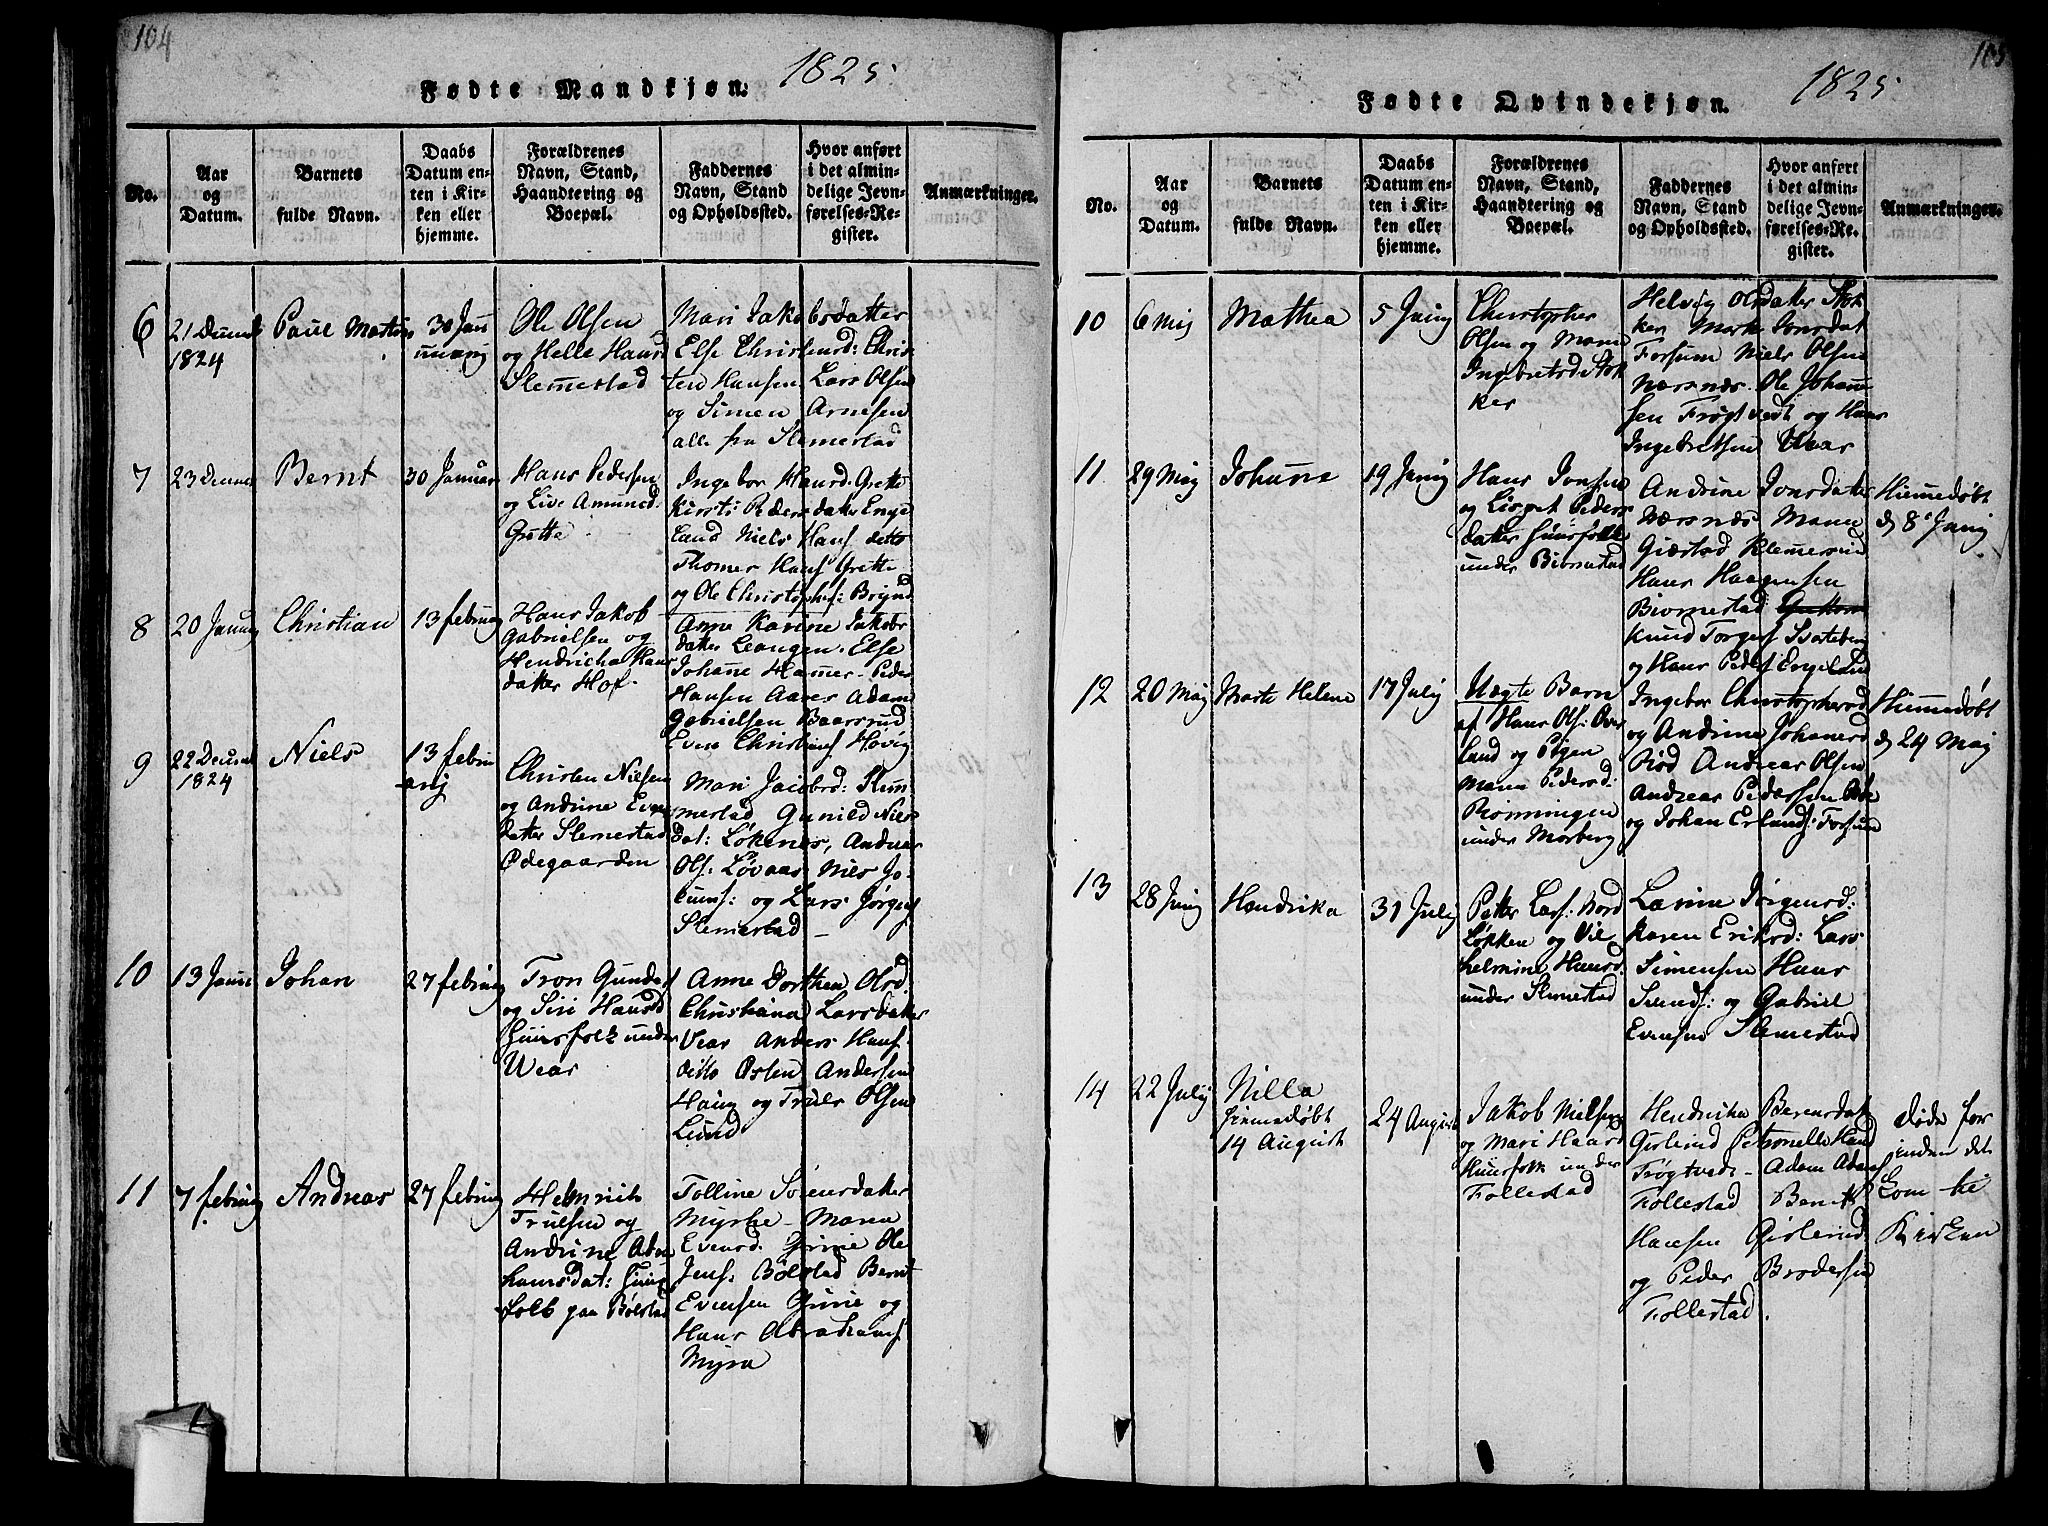 104
Fødte Mandkjøn. 1825.
No.
Aar
og
Datum.
Barnets
fulde Navn.
Daabs
Datum en-
ten i Kir-
ken eller
hjemme.
Forældrenes
Navn, Stand,
Haandtering og
Boepæl.
Faddernes
Navn, Stand
og Opholdssted.
Hvor anført
i det almin-
delige Jevn-
førelses-Re-
gister.
Anmærkninger.
6
21 Decemb
1824
Paul
30 Jan
Ole Olsen
og Helle Hansd
Slemestad
Mari Jakobsdatter
Else Christensd: Chris
ten Hansen Lars Olsen
og Simen Arnesen
alle fra Slemestad
7
23 Decem
Bernt
30 Januar
Hans Pedersen
og Live Amund.
Grette
Ingebor Hansd. Grette
Kirsti Pedersdatter Enge
land Niels Hans ditto
Thomes Hans Grette
og Ole Christophs:
8
20 Januarj
Christian
13 februarj
Hans Jakob
Gabrielsen og
Hendricha Hans
datter Hof.
Anne Karine Jakobs
datter Leangen. Else
Johanne Hamer. Peder
Hansen Aares Adam
Gabrielsen Baarsrud
Even Christians Høvig
9
22 Decemb
1824
Niels
13 febru
arij
Christen Nielsen
og Andrine Evens
datter Slemestad
Ødegaarden
Mari Jacobsd: Slem
mestad Gunild Niels
Dat: Løkenes, Andreas
Ols: Løvaas Niels Jo
og Lars Jørgens
Slemestad
10
13 Janu
Johan
27 februarj
Tron Gunders
og Siri Hansd
Huusfolk under
Wear
Anne Dorthea Olsd.
Christiana Larsdatter
Vear Anders Hans
ditto Østen Andersen
Haug og Truls Olsen
Lund
11
7 februarj
Andreas
27 februarj
Helmrich
Trulsen og
Andrine Abra
hamsdat: Huus
folk paa Bølstad
Tolline Sørensdatter
Myrhe Maren
Evensd. Ole
Jens: Bølstad Bernt
Evensen og
Hans Abrahams
Myra
105
Fødte Qvindekjøn. 1825.
No.
Aar
og
Datum.
Barnets
fulde Navn.
Daabs
Datum en-
ten i Kir-
ken eller
hjemme.
Forældrenes
Navn, Stand,
Haandtering og
Boepæl.
Faddernes
Navn, Stand
og Opholdssted.
Hvor anført
i det almin-
delige Jevn-
førelses-Re-
gister.
Anmærkninger.
10
6 Maj
Mathea
5 Junij
Christopher
Olsen og Maren
Ingebretsd Stok
ker
Helvig Olsdatter Stok
ker Marte Jonsdat
Forsum Niels Olsen
Nærsnæs. Ole Johann
sen Frøgtvedt og Hans
Ingebretsen Vear
11
29 Maj
Johanne
19 Junij
Hans Jonsen
og Lispet Peders
datter Huusfolk
under Biørnestad
Andrine Jonsdatter
Nærsnæs Maren
Giæstad Klemersrud
Hans Haagensen
Biørnestad
Knud Torgers Svatebers
og Hans Peders Engelund
Hiemmedøbt
d 8de Junij
12
20 Maj
Marte Helene
17 Julij
Uægte Barn
af Hans Ols: Øver
land og Pigen
Maren Pedersd:
Rønningen
under Morberg
Ingebor Christophersd
og Andrine Johanesd
Rød Andreas Olsen
Andreas Pedersen
og Johan Erlands: Forsum
Hiemmedøbt
d 24 Maj
13
28 Junij
Hendrika
31 Julij
Petter Lars: Nord
Løkken og Vil
helmine Hansd.
under Slemestad
Lavine Jørgensd:
Karen Eriksd: Lars
Simensen Hans
Svends: og Gabriel
Evensen Slemestad
14
22 Julij
Nilla
hiemmedøbt
14 August
24 August
Jakob Nielsen
og Mari Haards
Huusfolk under
Follestad
Hendricha Berensdat
Gislerud Petronelle Hansd
Frøgtvedt Adam Adams
Follestad Bernt
Hansen Gislerud
og Peder Brodersen
Follestad.
døde for
jnden det
Kom til
Kirken